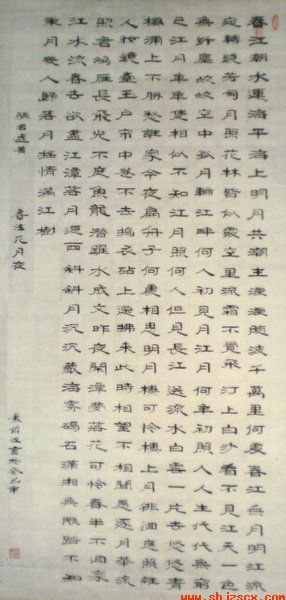 春江潮水連海平海上明月共潮生灩灩隨波千萬里何處春江無月明江流
宛轉繞芳甸月照花林皆似霰空里流霜不覺飛汀上白沙看不見江天一色
無纖塵皎皎空中孤月輪江畔何人初見月江月何年初照人人生代代無窮
已江月年年隻相似不知江月照何人但見長江送流水白雲一片去悠悠青
楓浦上不勝愁誰家今夜扁舟子何處相思明月樓可憐樓上月徘徊應照離
人妝鏡臺玉戶帘中卷不去搗衣砧上還拂來此時相望不相聞願逐月華流
照君鴻雁長飛光不度魚龍潛躍水成文昨夜閒潭夢落花可憐春半不還家
江水流春去欲盡江潭落月復西斜斜月沉沉藏海霧碣石瀟湘無限路不知
乘月幾人歸落月搖情滿江樹
張若虛著 春江花月夜
www.shizscx.com